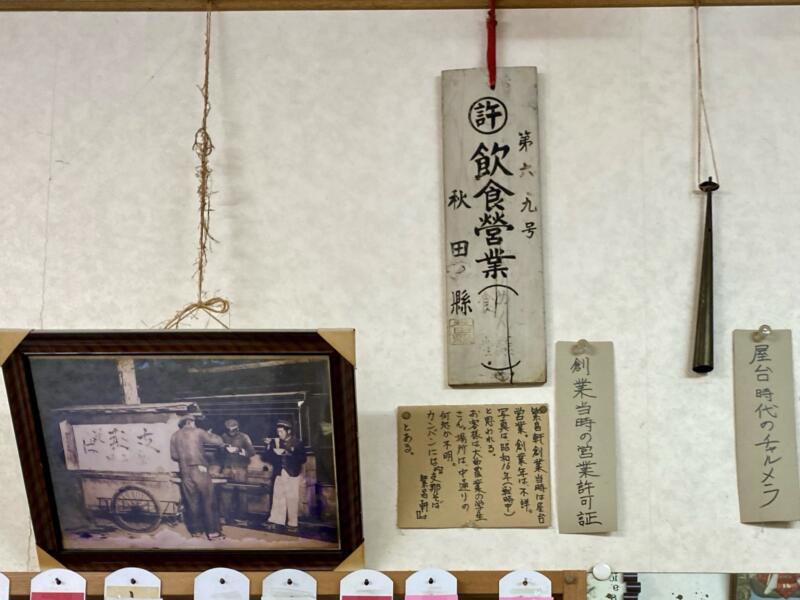 許
第六九号
飲食營業
秋田縣
繁昌軒創業当時は屋台
営業。創業年は不詳。
写真は昭和16年(戦時中)
と思われる。
お客様は大曲農業の学生
さん。場所は中通りの
何処か不明。
カンバンには「支那そば
繁昌軒」
とある。
創業当時の営業許可証
屋台時代のチャルメラ